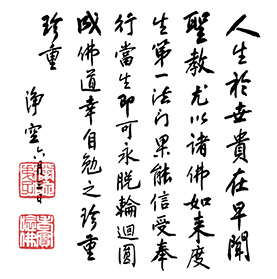 人生於世貴在早聞
聖教尤以諸佛如來度
生第一法門果能信受奉
行當生即可永脫輪迴圓
成佛道幸自勉之珍重
珍重
淨空六月